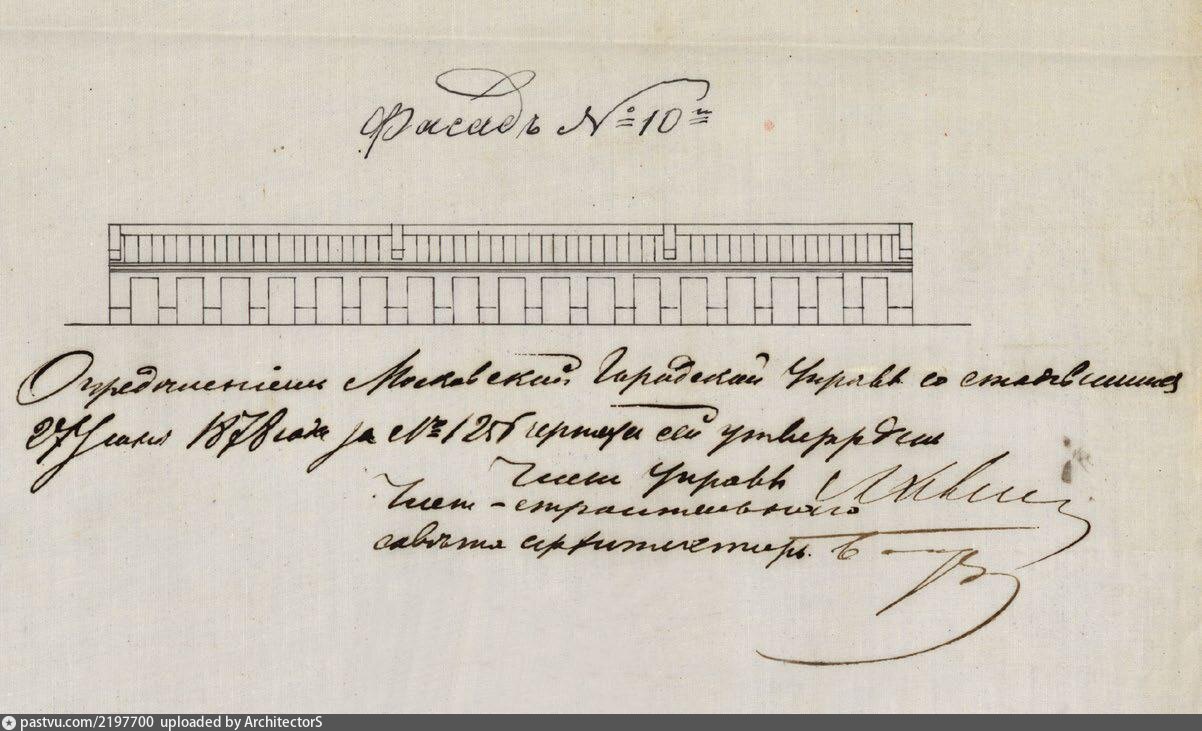 Фасадъ № 10й
Опредѣленіемъ Московской Городской Управы состоявшимся
27 1878 года за № чертежъ сей утвержденъ
Членъ Управы
Членъ строительнаго
совѣта архитекторъ
pastvu.com/2197700 uploaded by ArchitectorS